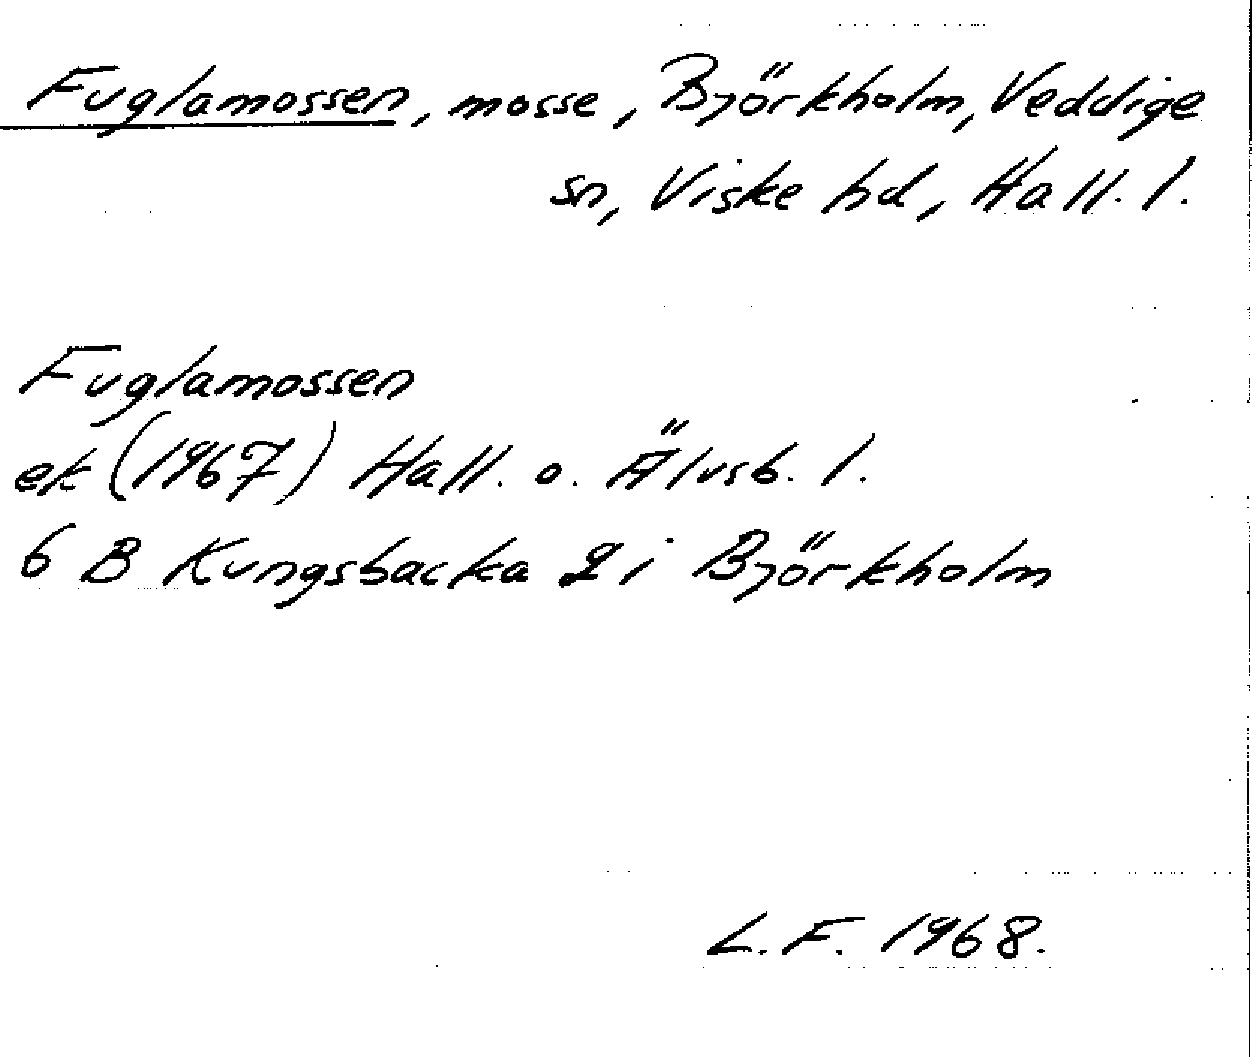 Fuglamossen, mosse, Björkholm, Veddige
sn, Viske hd, Hall. l.
Fuglamossen
ek (1967) Hall. o. Älvsb. l.
6 B Kungsbacka 2 i Björkholm
L.F. 1968.